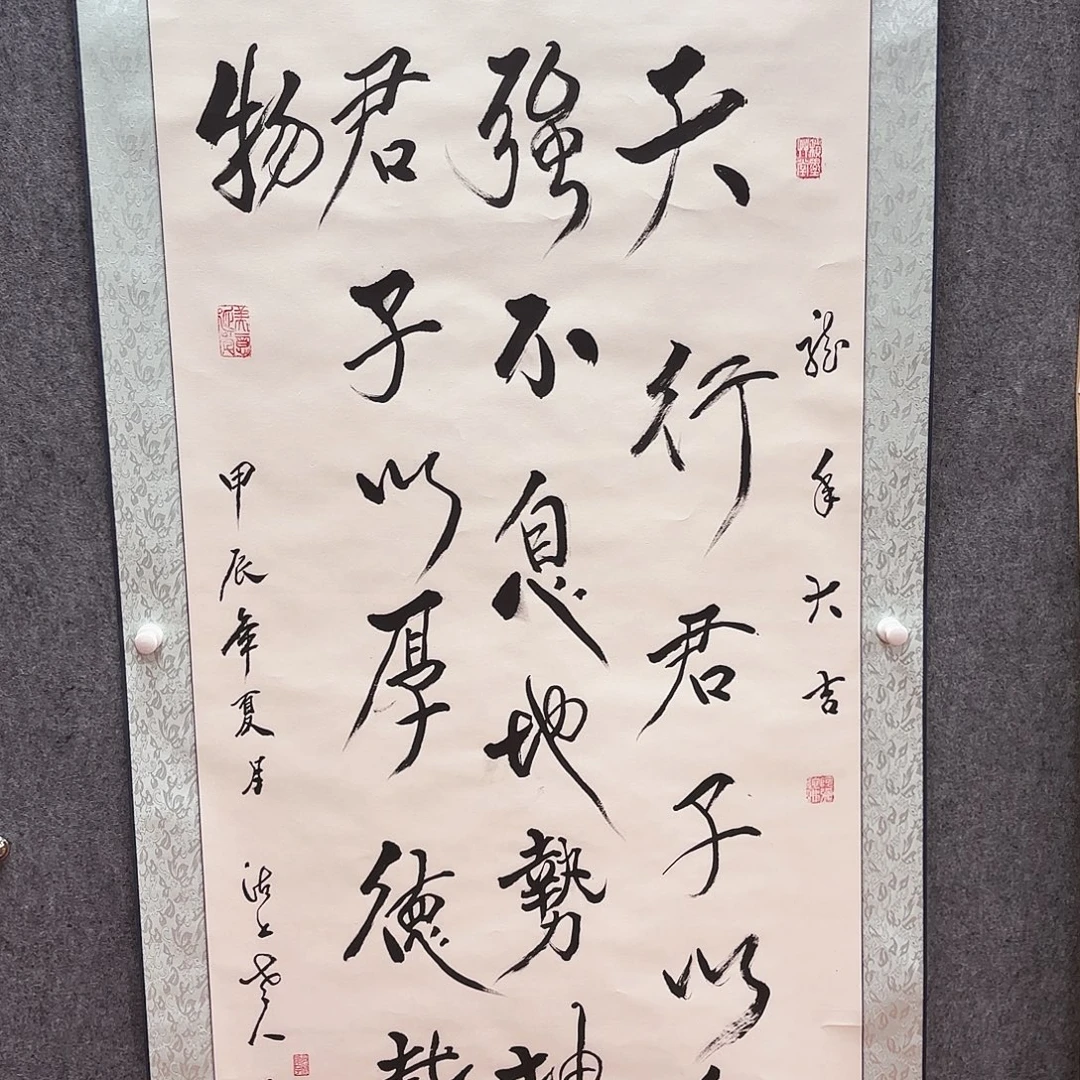 龍年大吉
天行君子以
强不息地勢坤
君子以厚德載
物
甲辰年夏月 沽上老人